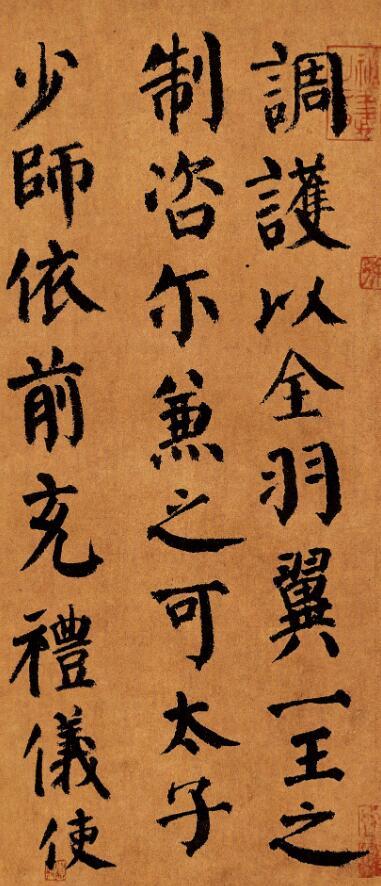 調護以全羽翼一王之
制咨尓兼之可太子
少師依前充禮儀使